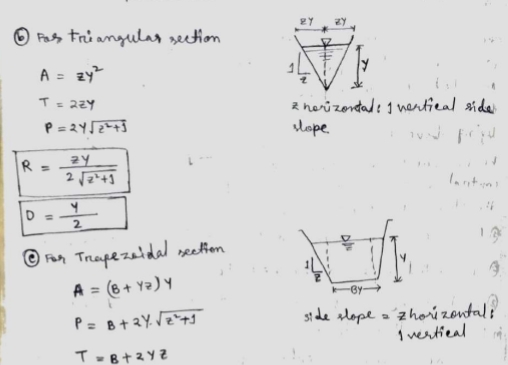 ⓑ For triangular section
zy zy
A = zy²
T = 2zy
P = 2y√z²+1
R = zy / 2√z²+1
D = y / 2
1
z
y
z horizontal : 1 vertical side
slope
ⓒ For Trapezoidal section
A = (B + yz) y
P = B + 2y √z²+1
T = B + 2yz
1
z
y
By
side slope = z horizontal :
1 vertical